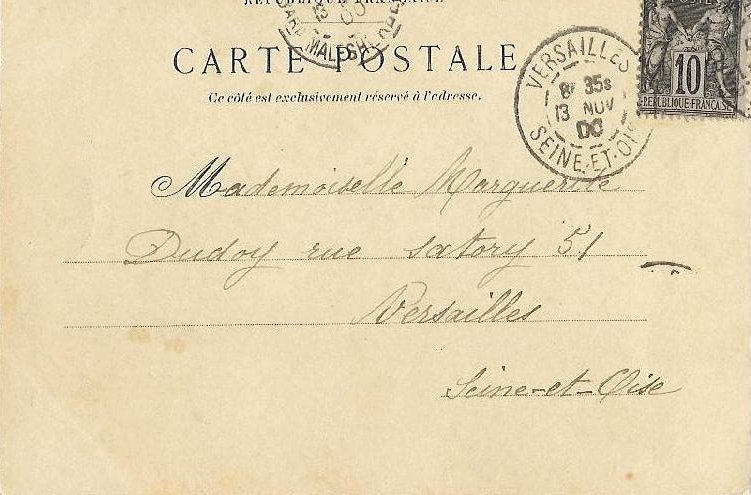 RÉPUBLIQUE FRANÇAISE
13
00
GARE MALESH
CARTE POSTALE
Ce côté est exclusivement réservé à l'adresse.
VERSAILLES
8E 35S
13 NOV
00
SEINE-ET-OISE
10
REPUBLIQUE FRANÇAISE
Mademoiselle Marguerite
Dudoy rue Satory 51
Versailles
Seine-et-Oise